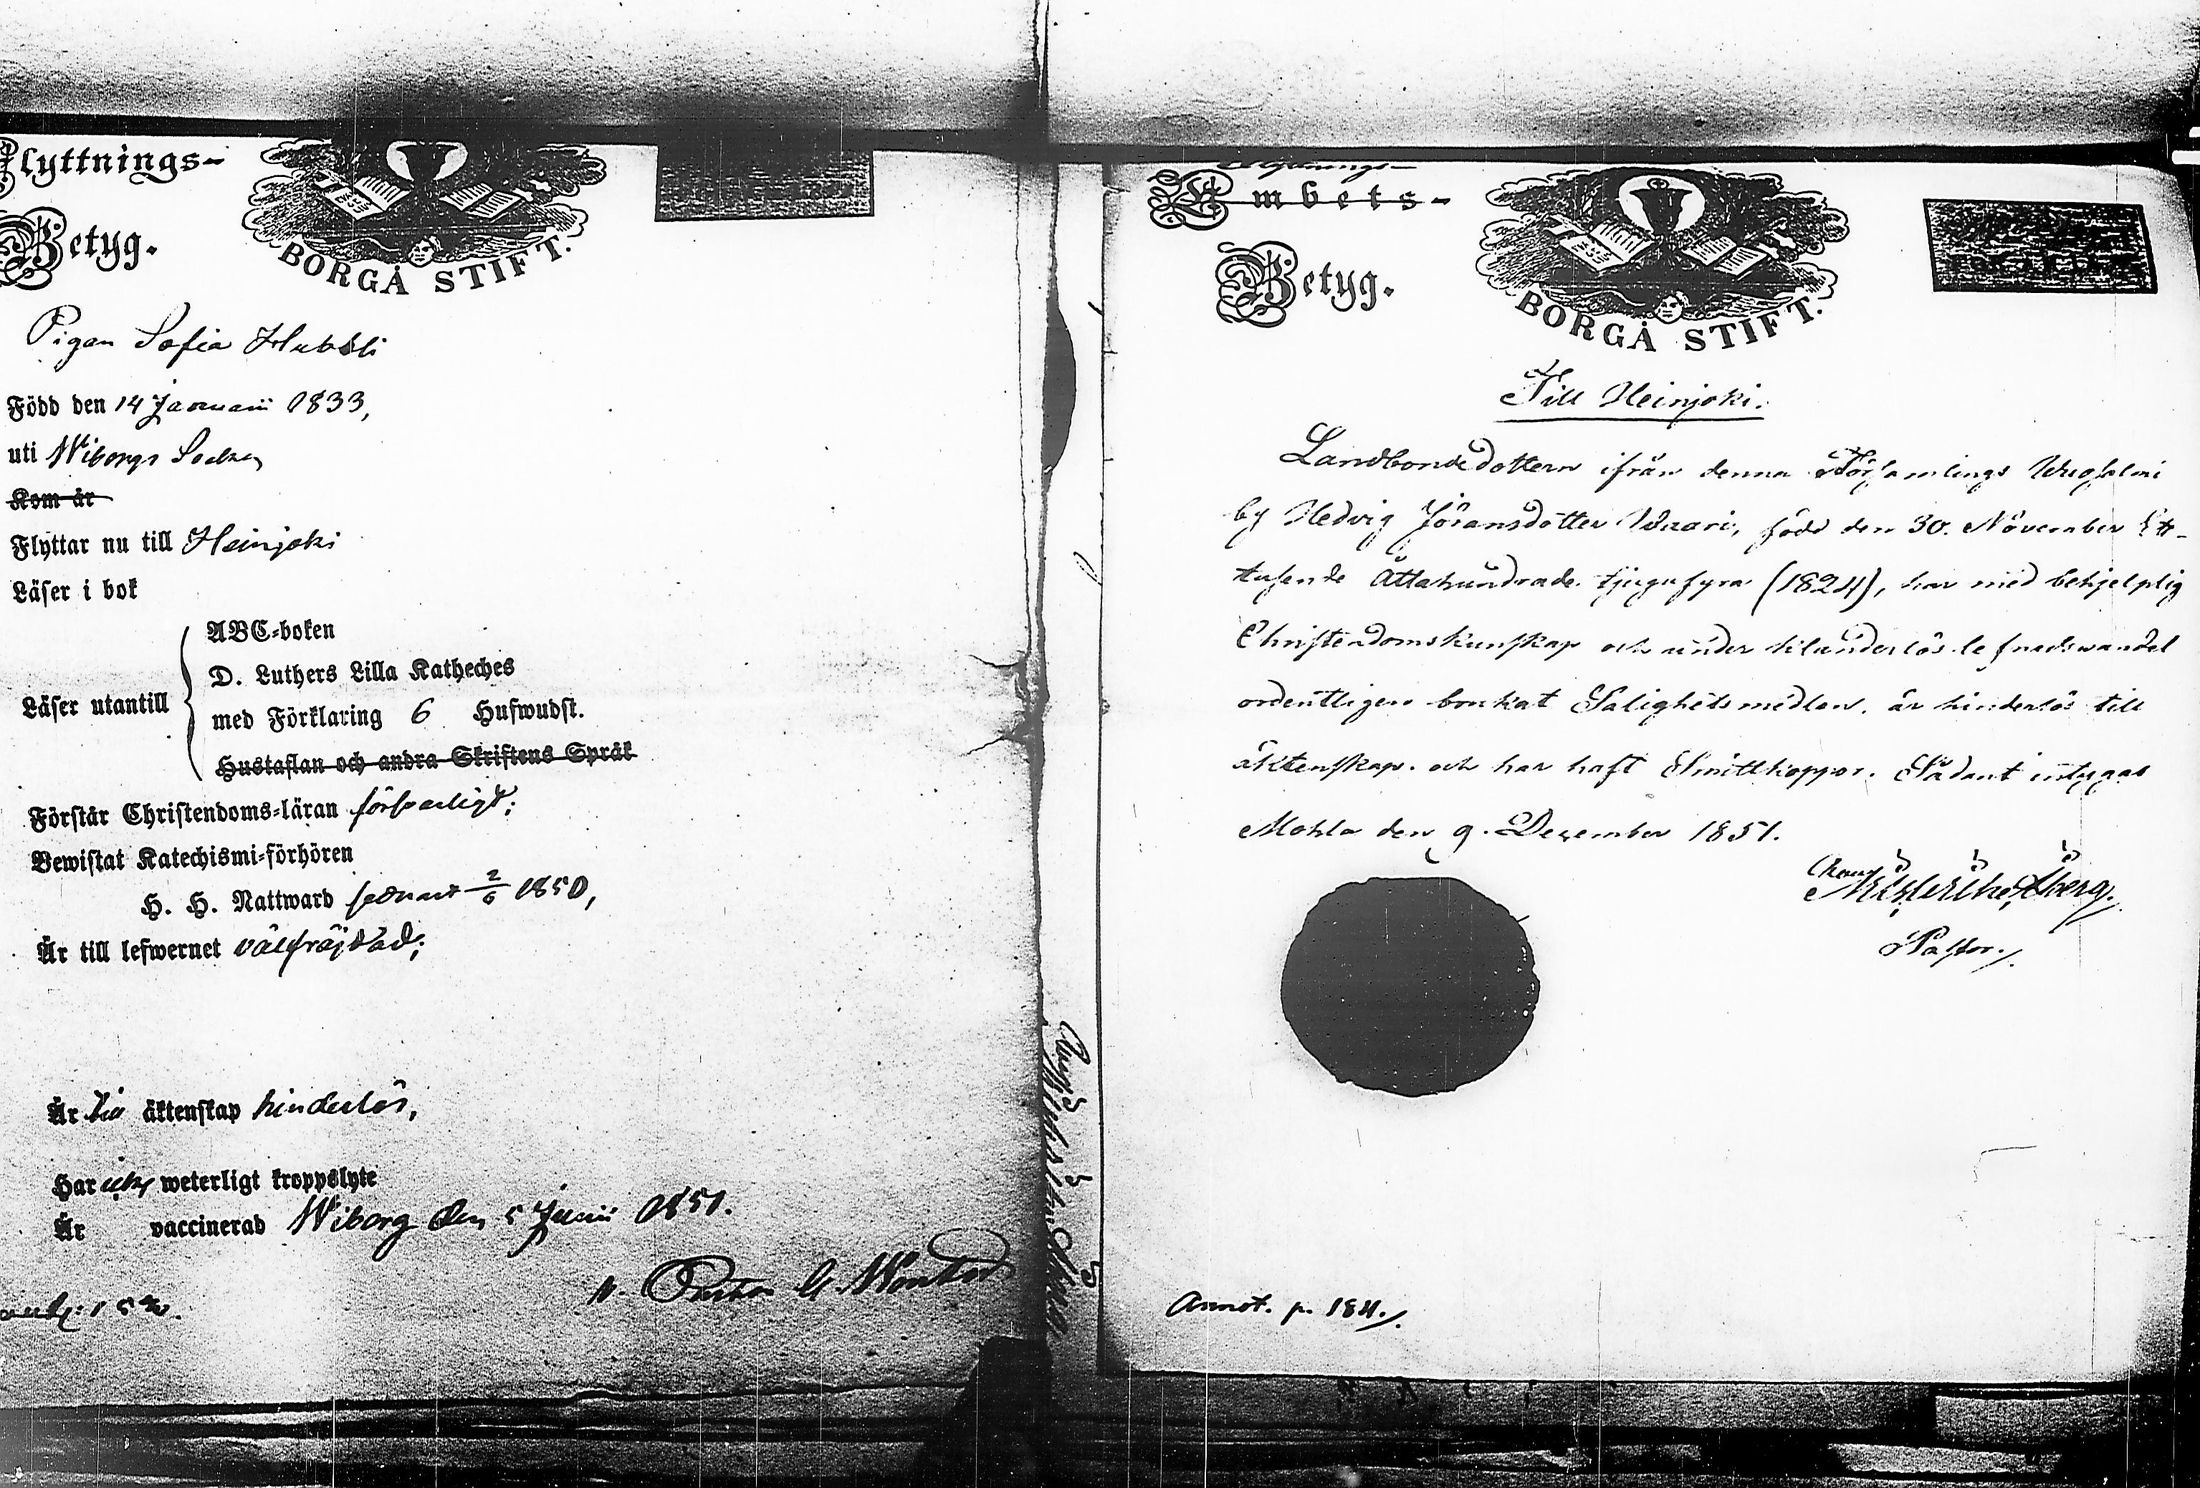 Flyttnings-
Betyg.
BORGÅ STIFT.
Pigan Sofia
Född den 14 Januarii 1833,
uti Wiborgs Socken
Kom år
Flyttar nu till Heinjoki
Läser i bok
Läser utantill
ABC-boken
D. Luthers Lilla Katheches
med Förklaring 6 Hufwudst.
Hustaflan och andra Skriftens Språk
Förstår Christendoms-läran försvarligt;
Bewistat Katechismi-förhören
H. H. Nattward sednast 2/6 1850,
Är till lefwernet välfräjdad;
Är till äktenskap hinderlös,
Har icke weterligt kroppslyte
Är vaccinerad Wiborg den 5 Junii 1851.
Flyttnings-
Ambets-
Betyg.
BORGÅ STIFT.
Till Heinjoki.
Landbondedottern ifrån denna Församlings
by Hedvig Jöransdotter född den 30. November Ett-
tusende Åttahundrade tjugufyra (1824), har med behjelplig
Christendomskunskap och under oklanderlös lefnadswandel
ordentligen brukat Salighetsmedlen, är hinderlös till
äktenskap, och har haft Smittkoppor. Sådant intygas
Mohla den 9. December 1851.
Pastor.
Annot. p. 184.